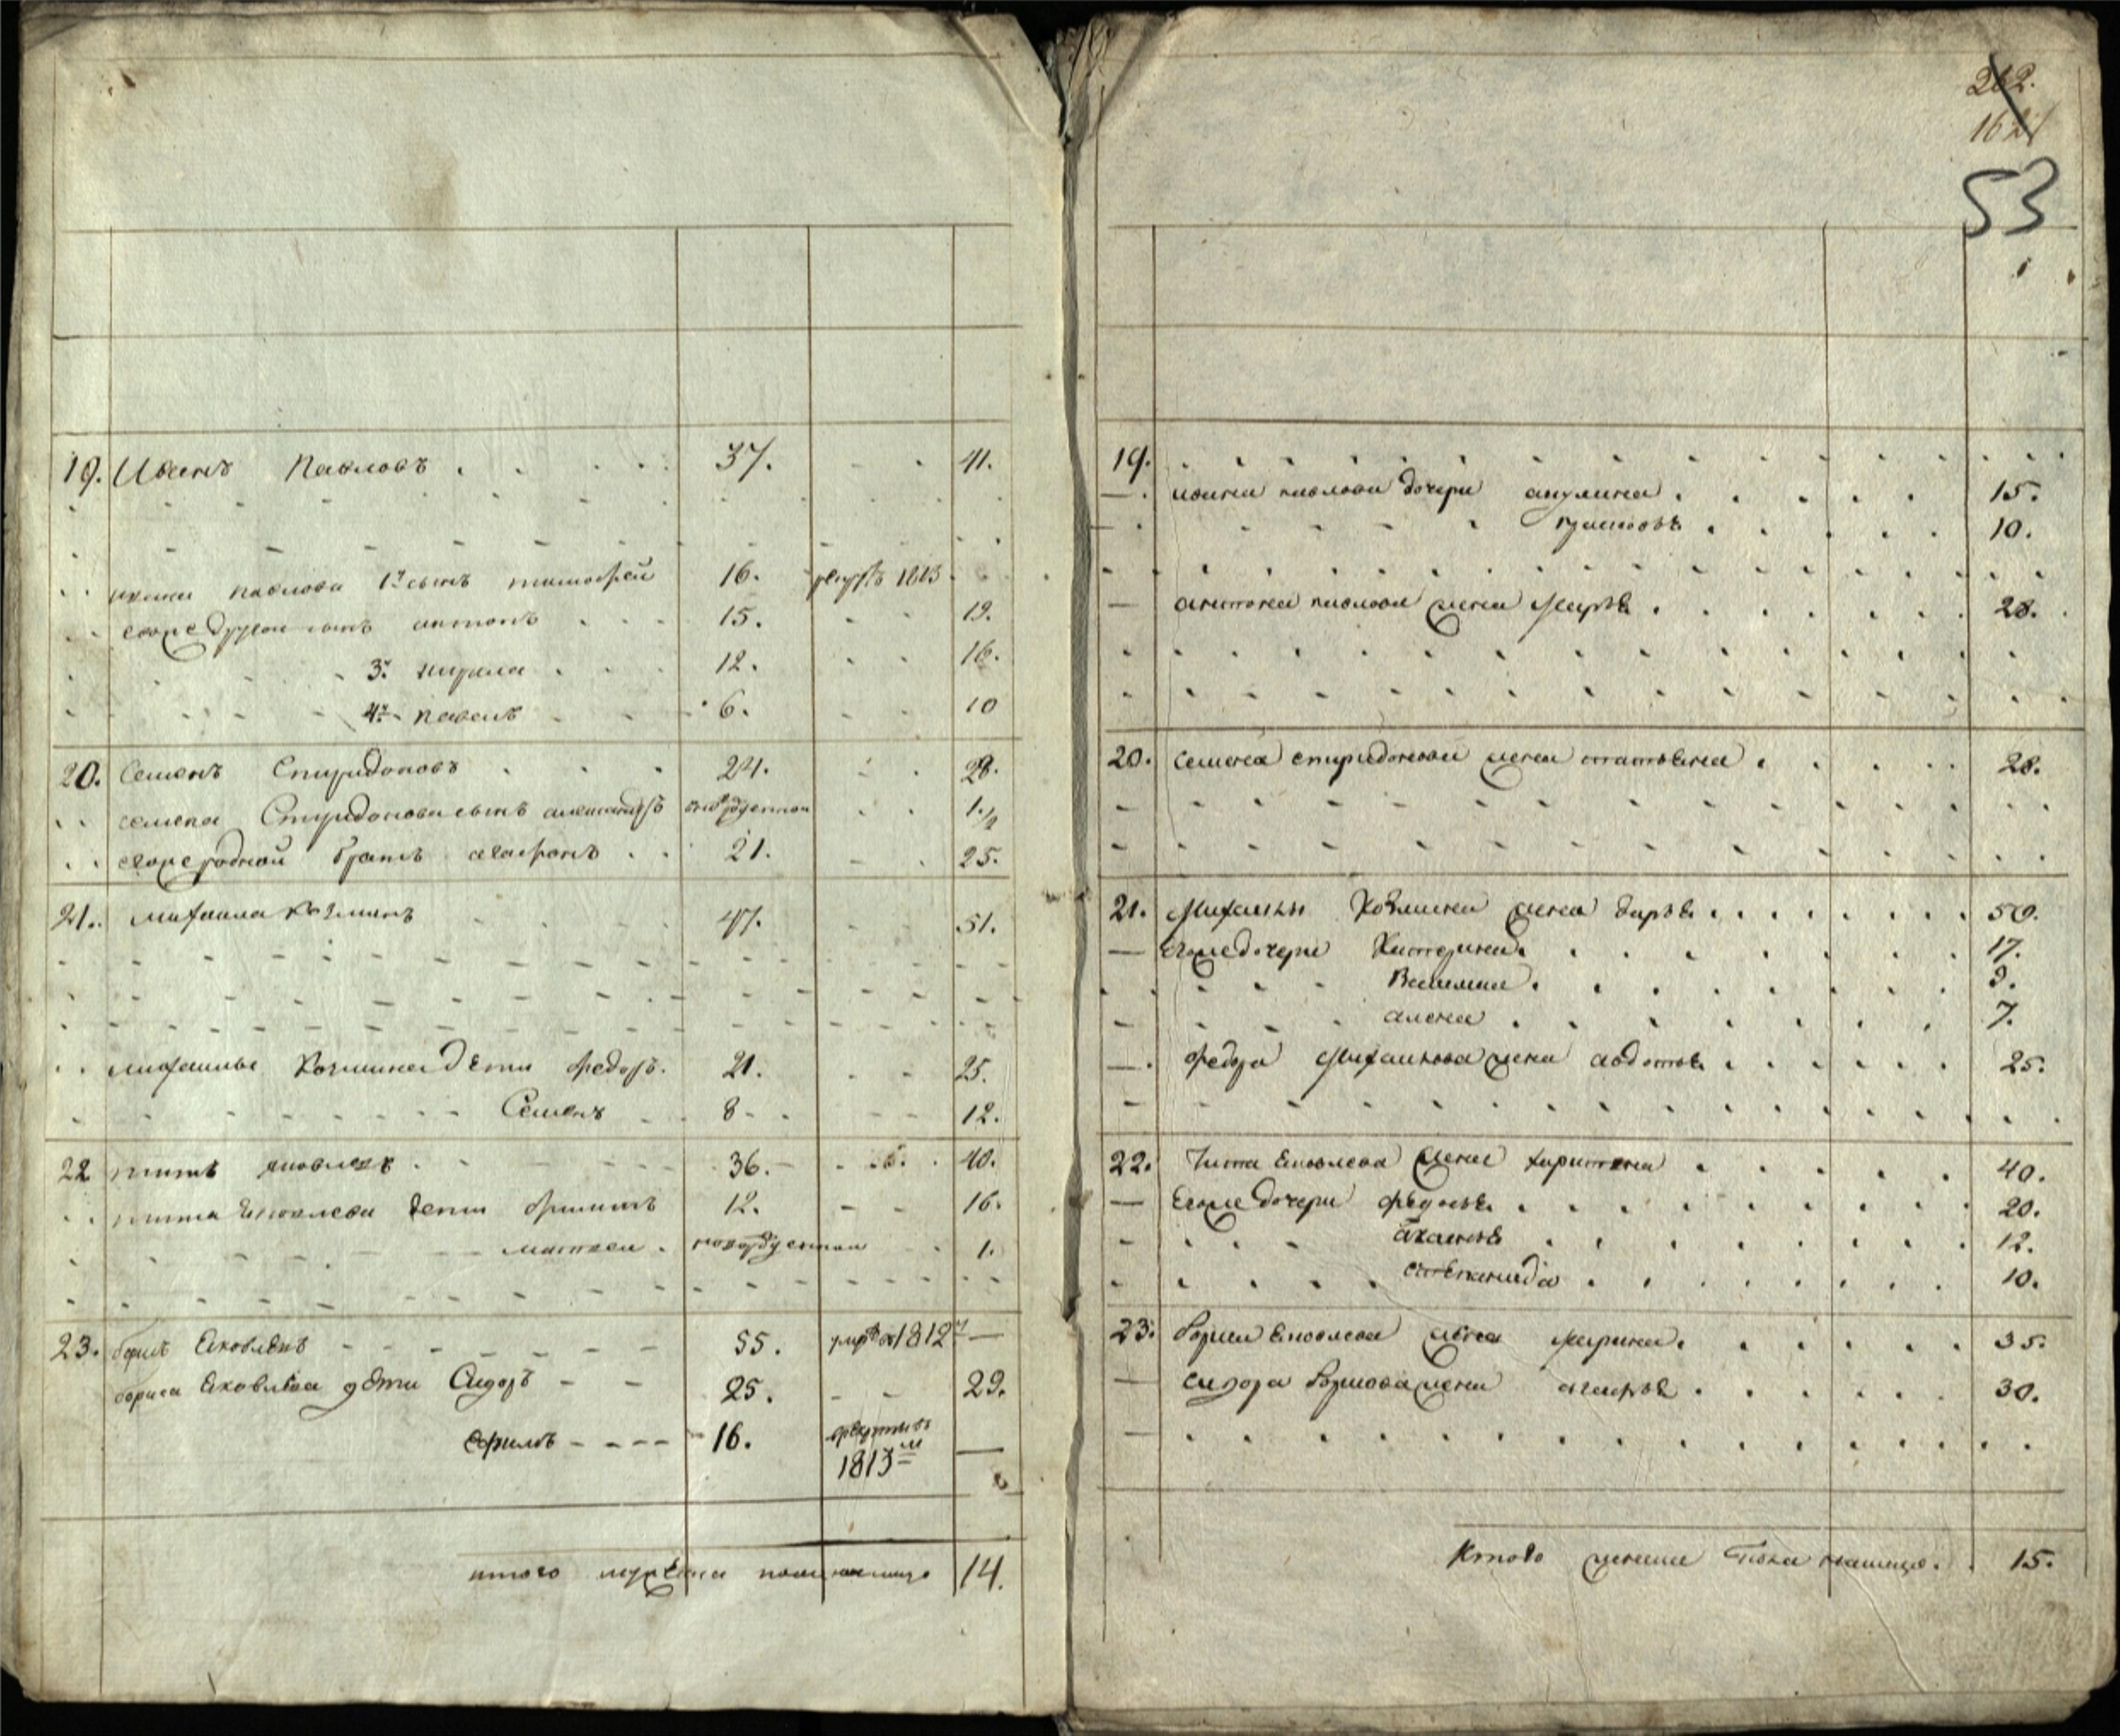 19. Иванъ Павловъ 37. 41.
ивана павлова 1й сынъ тимофей 16. рекрутъ 1813
егоже другой сынъ антонъ 15. 19.
3й кирила 12. 16.
4й павелъ 6. 10
20. Семенъ Спиридоновъ 24. 28.
семена Спиридонова сынъ александръ новорожденной 1 1/2
егоже родной братъ агафонъ 21. 25.
21. михаила козминъ 47. 51.
михаилы козмина дети федоръ. 21. 25.
Семенъ 8 12.
22 титъ яковлевъ 36. 40.
тита яковлева дети филипъ 12. 16.
матвеи новорожденной 1.
23. борисъ Яковлевъ 55. умре 1812
бориса Яковлева дѣти Сидоръ 25. 29.
ефимъ 16. врекруты въ
1813м
итого мужеска пола налицо 14.
202.
162
53
19.
ивана павлова дочери акулина 15.
10.
антона павлова жена марфа 28.
20. семена спиридонова жена татьяна 28.
21. Михаилы Козмина жена дарья 50.
егоже дочери Катерина 17.
Василиса 9.
алена 7.
федора Михаилова жена авдотья 25.
22. Тита Яковлева жена харитина 40.
Егоже дочери федосья 20.
12.
степанида 10.
23. Бориса Яковлева жена марина 35.
сидора Борисова жена агафья 30.
Итого женска Пола налицо 15.